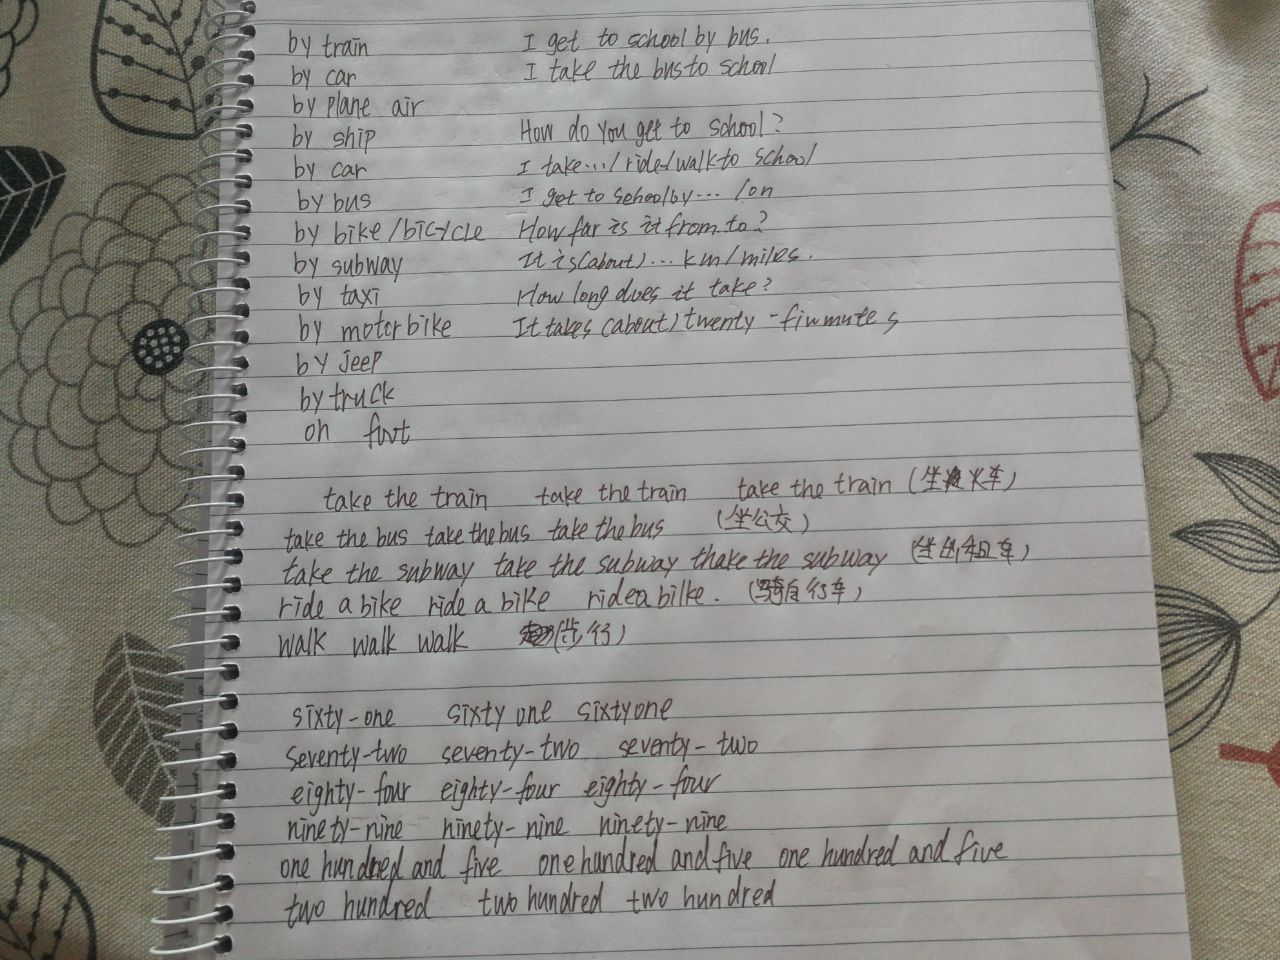 by train I get to school by bus.
by car I take the bus to school
by plane air
by ship How do you get to school?
by car I take.../ride/walk to school
by bus I get to school by... /on
by bike/bicycle How far is it from to?
by subway It is (about)... km/miles.
by taxi How long does it take?
by motorbike It takes (about) twenty-
by jeep
by truck
on foot
take the train take the train take the train (坐火车)
take the bus take the bus take the bus (坐公交)
take the subway take the subway thake the subway (坐出租车)
ride a bike ride a bike ride a bilke. (骑自行车)
walk walk walk (步行)
sixty-one sixty one sixty one
seventy-two seventy-two seventy-two
eighty-four eighty-four eighty-four
ninety-nine ninety-nine ninety-nine
one hundred and five one hundred and five one hundred and five
two hundred two hundred two hundred